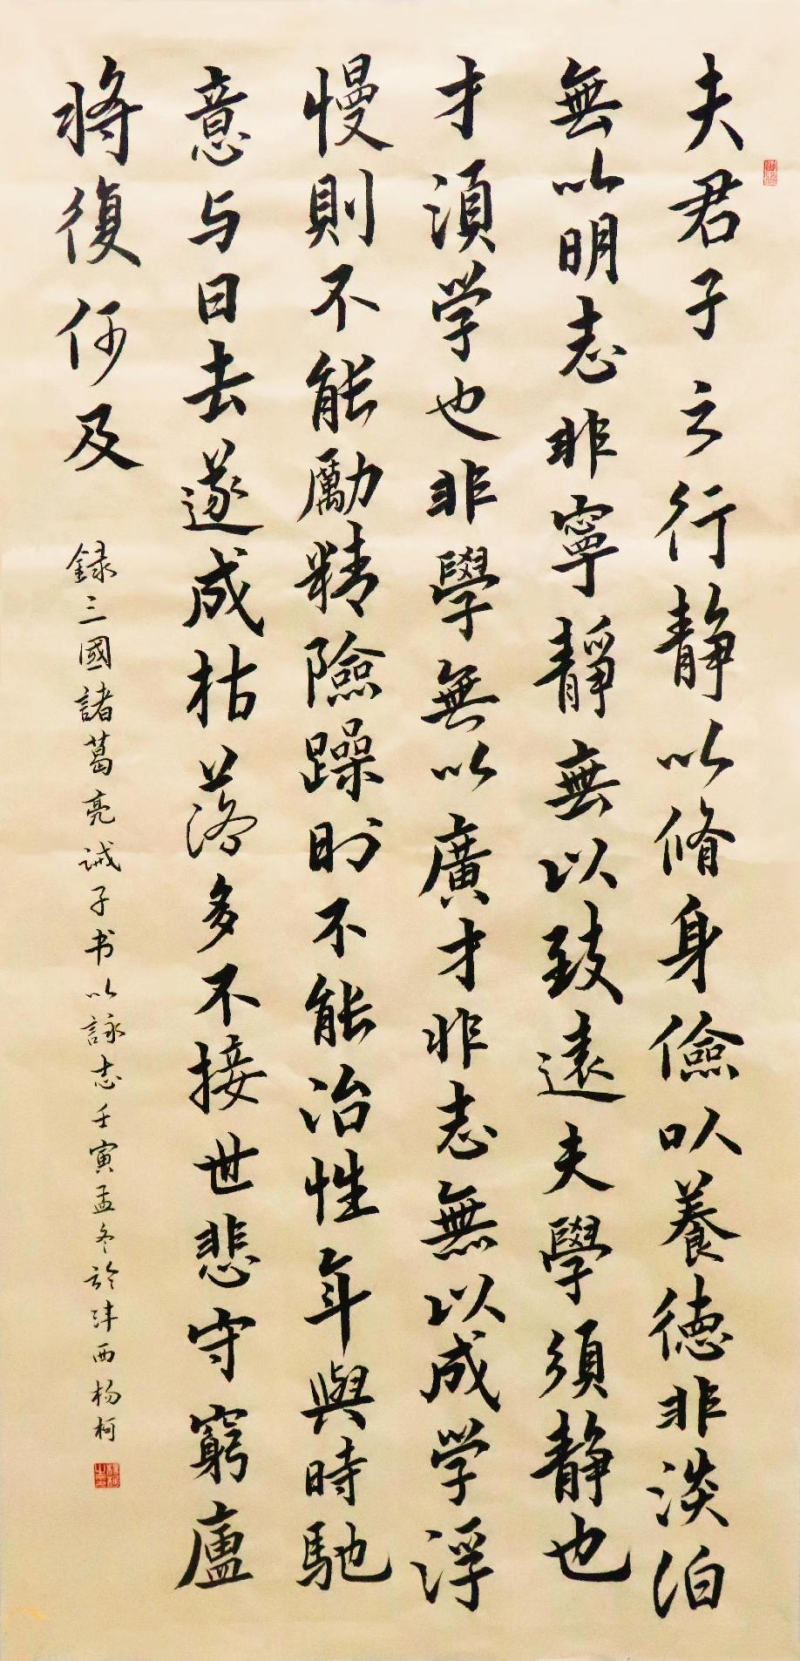 夫君子之行静以脩身儉以養德非淡泊
無以明志非寧靜無以致遠夫學須静也
才須学也非學無以廣才非志無以成学浮
慢則不能勵精險躁則不能冶性年與時馳
意与日去遂成枯落多不接世悲守窮廬
将復何及
録三國諸葛亮诫子书以詠志壬寅孟冬於津西杨柯